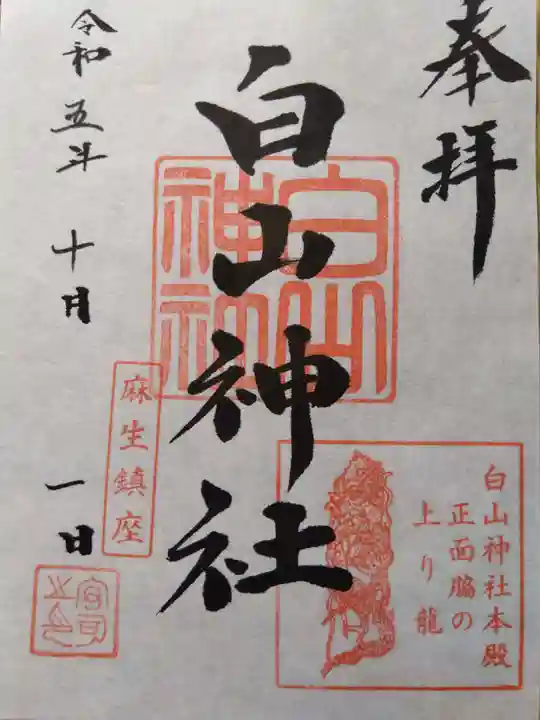 奉拝
白山神社
白山神社
白山神社本殿
正面脇の
上り龍
麻生鎮座
令和五年十月一日
宮司之印